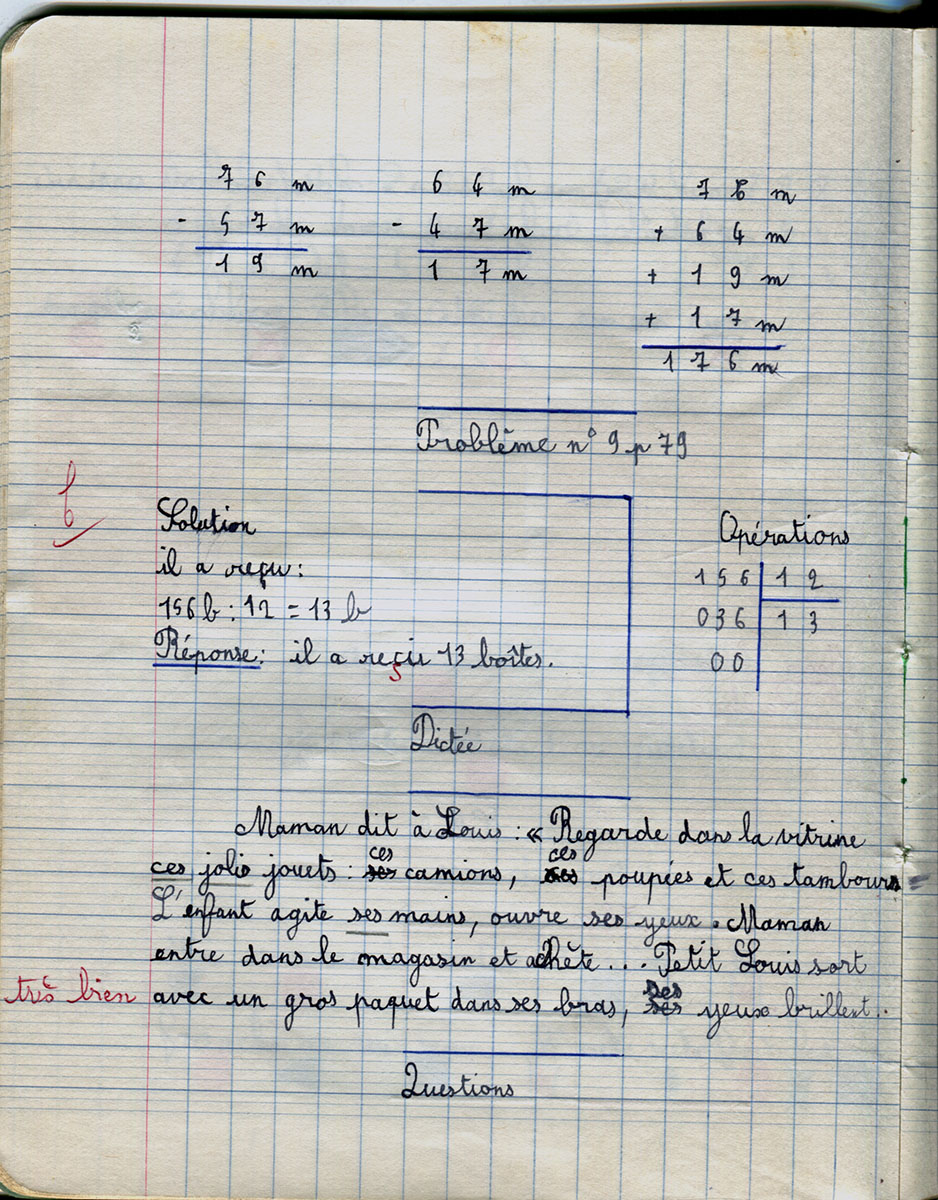 7 6 m
- 5 7 m
1 9 m
6 4 m
- 4 7 m
1 7 m
7 6 m
+ 6 4 m
+ 1 9 m
+ 1 7 m
1 7 6 m
Problème n° 9 p 79
b
Solution
il a reçu :
156 b : 12 = 13 b
Réponse : il a reçu 13 boîtes.
Opérations
1 5 6 | 1 2
0 3 6 | 1 3
0 0
Dictée
Maman dit à Louis : « Regarde dans la vitrine
ces jolis jouets : ces camions, ces poupées et ces tambours
L'enfant agite ses mains, ouvre ses yeux. Maman
entre dans le magasin et achète... Petit Louis sort
très bien avec un gros paquet dans ses bras, ses yeux brillent..
Questions